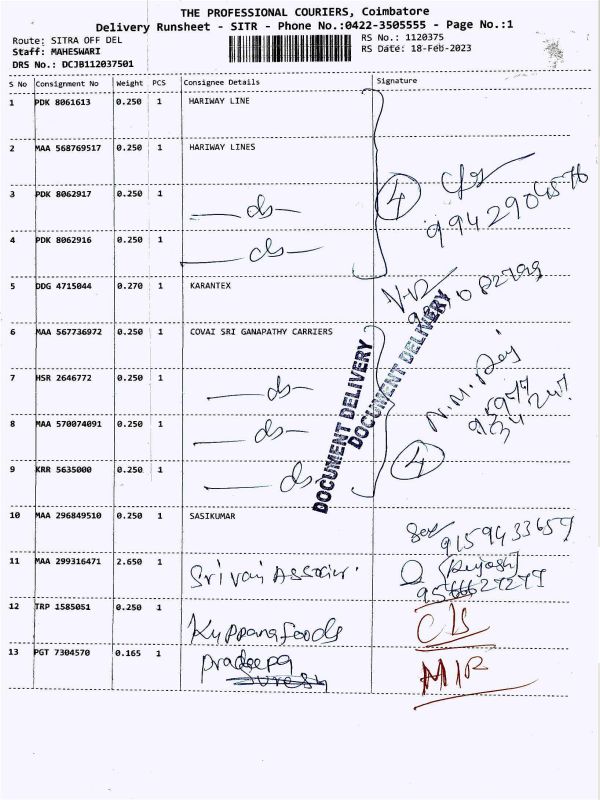 THE PROFESSIONAL COURIERS, Coimbatore
Delivery Runsheet - SITR - Phone No.:0422-3505555 - Page No.:1
Route: SITRA OFF DEL
RS No.: 1120375
Staff: MAHESWARI
RS Date: 18-Feb-2023
DRS No.: DCJB112037501
S No Consignment No Weight PCS Consignee Details Signature
1 PDK 8061613 0.250 1 HARIWAY LINE
2 MAA 568769517 0.250 1 HARIWAY LINES
3 PDK 8062917 0.250 1 —ds—
4 PDK 8062916 0.250 1 —ds—
4
9942904576
5 DDG 4715044 0.270 1 KARANTEX
6 MAA 567736972 0.250 1 COVAI SRI GANAPATHY CARRIERS
DOCUMENT DELIVERY
DOCUMENT DELIVERY
7 HSR 2646772 0.250 1 —ds—
8 MAA 570074091 0.250 1 —ds—
9 KRR 5635000 0.250 1 —ds—
4
10 MAA 296849510 0.250 1 SASIKUMAR
9159433657
11 MAA 299316471 2.650 1 Srivari
12 TRP 1585051 0.250 1 Kuppana foods
13 PGT 7304570 0.165 1 Pradeepa
Suresh